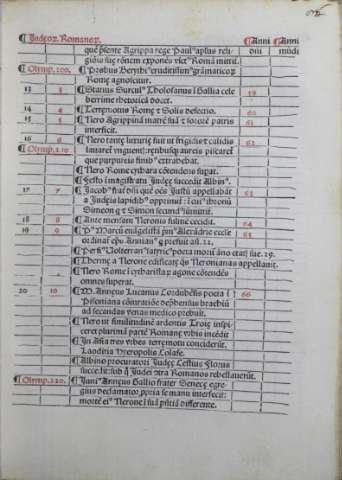 ¶ Judeoꝝ. Romanoꝝ. ¶Anni ¶Anni
dñi mũdi
quẽ pſente Agrippa rege Paulꝰ aplus reli
gionis ſue rõnem exponẽs vict Romã mittit.
¶ Olimp. 209. ¶ Probus Berythiꝰ eruditiſſimꝰ grãmaticoꝝ
Rome agnoſcitur.
13 3 ¶ Statius Surculꝰ Tholoſanus ĩ Gallia cele
berrime rhetoricã docet.
59
14 4 ¶ Terremotus Rome & Solis defectio. 60
15 5 ¶ Nero Agrippinã matrẽ ſuã & ſororẽ patris
interficit.
61
16 6 ¶ Nero tante luxurie fuit ut frigidis & calidis
62
¶ Olimp. 210. lauaret unguentis: retibuſqꝫ aureis piſcaret
que purpureis funibꝰ extrahebat.
¶ Nero Rome cythara cõtendens ſupat.
¶ Feſto ĩ magiſtratu Judeę ſuccedit Albinꝰ.
17 7 ¶ Jacobꝰ frater dñi quẽ oẽs Juſtũ appellabãt
63
a Judeis lapidibꝰ opprimit: ĩ cuiꝰ thronũ
Simeon q & Simon ſecundꝰ aſſumit.
18 8 ¶ Ante menſam Neronis fulmẽ cecidit. 64
19 9 ¶ Pꝰ Marcũ euãgeliſtã pmꝰ Alexãdrie eccle
65
ẽ ordinatꝰ epũs Annianꝰ q prefuit añ. 22.
¶ Perſiꝰ Volterranꝰ ſatyricꝰ poeta morit ãno etatꝭ ſue. 29.
¶ Thermę a Nerone edificatę q̃s Neronianas appellauit.
¶ Nero Rome ĩ cythariſta ꝝ agone cõtendẽs
omnes ſuperat.
20 10 ¶ M. Anneus Lucanus Cordubẽſis poeta ĩ
66
Piſoniana cõiuratiõe deprehẽſus brachiũ
ad ſecandas venas medico prebuit.
¶ Nero ut ſimilitudinẽ ardentis Troię inſpi
ceret plurimã partẽ Romanę vrbis incẽdit
¶ In Aſia tres vrbes terremotu conciderũt.
Laoditia Hieropolis Coloſe.
¶ Albino procuratori Judeę Ceſtius Florus
ſuccedit: ſub q̃ Judei cõtra Romanos rebellauerũt.
¶ Olimp. 210. ¶ Juniꝰ Annęus Gallio frater Senecę egre
gius declamator ꝓpria ſe manu interfecit:
mortẽ eiꝰ Nerone ĩ ſuã pñtiã differente.